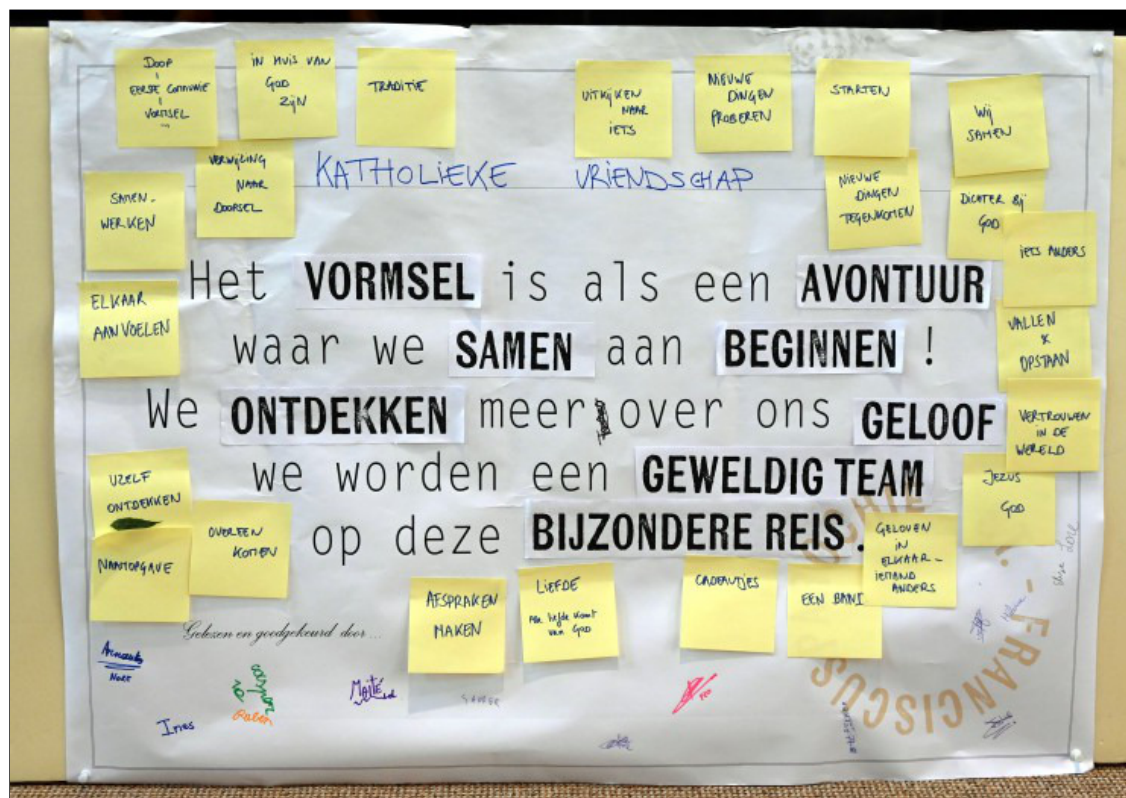 DOOP
EERSTE COMMUNIE
VORMSEL
IN HUIS VAN
GOD
ZIJN
TRADITIE
UITKIJKEN
NAAR
IETS
NIEUWE
DINGEN
PROBEREN
STARTEN
WIJ
SAMEN
VERWIJLING
NAAR
DOOPSEL
KATHOLIEKE VRIENDSCHAP
NIEUWE
DINGEN
TEGENKOMEN
DICHTER BIJ
GOD
IETS ANDERS
SAMEN-
WERKEN
ELKAAR
AANVOELEN
Het VORMSEL is als een AVONTUUR
waar we SAMEN aan BEGINNEN !
We ONTDEKKEN meer over ons GELOOF
we worden een GEWELDIG TEAM
op deze BIJZONDERE REIS.
VALLEN
&
OPSTAAN
VERTROUWEN
IN DE
WERELD
JEZUS
GOD
UZELF
ONTDEKKEN
NAAMOPGAVE
OVEREEN
KOMEN
AFSPRAKEN
MAKEN
LIEFDE
Alle liefde komt
van GOD
CADEAUTJES
EEN BAND
GELOVEN
IN
ELKAAR -
IEMAND
ANDERS
Gelezen en goedgekeurd door ...
Ines
Maité
FRANCISCUS